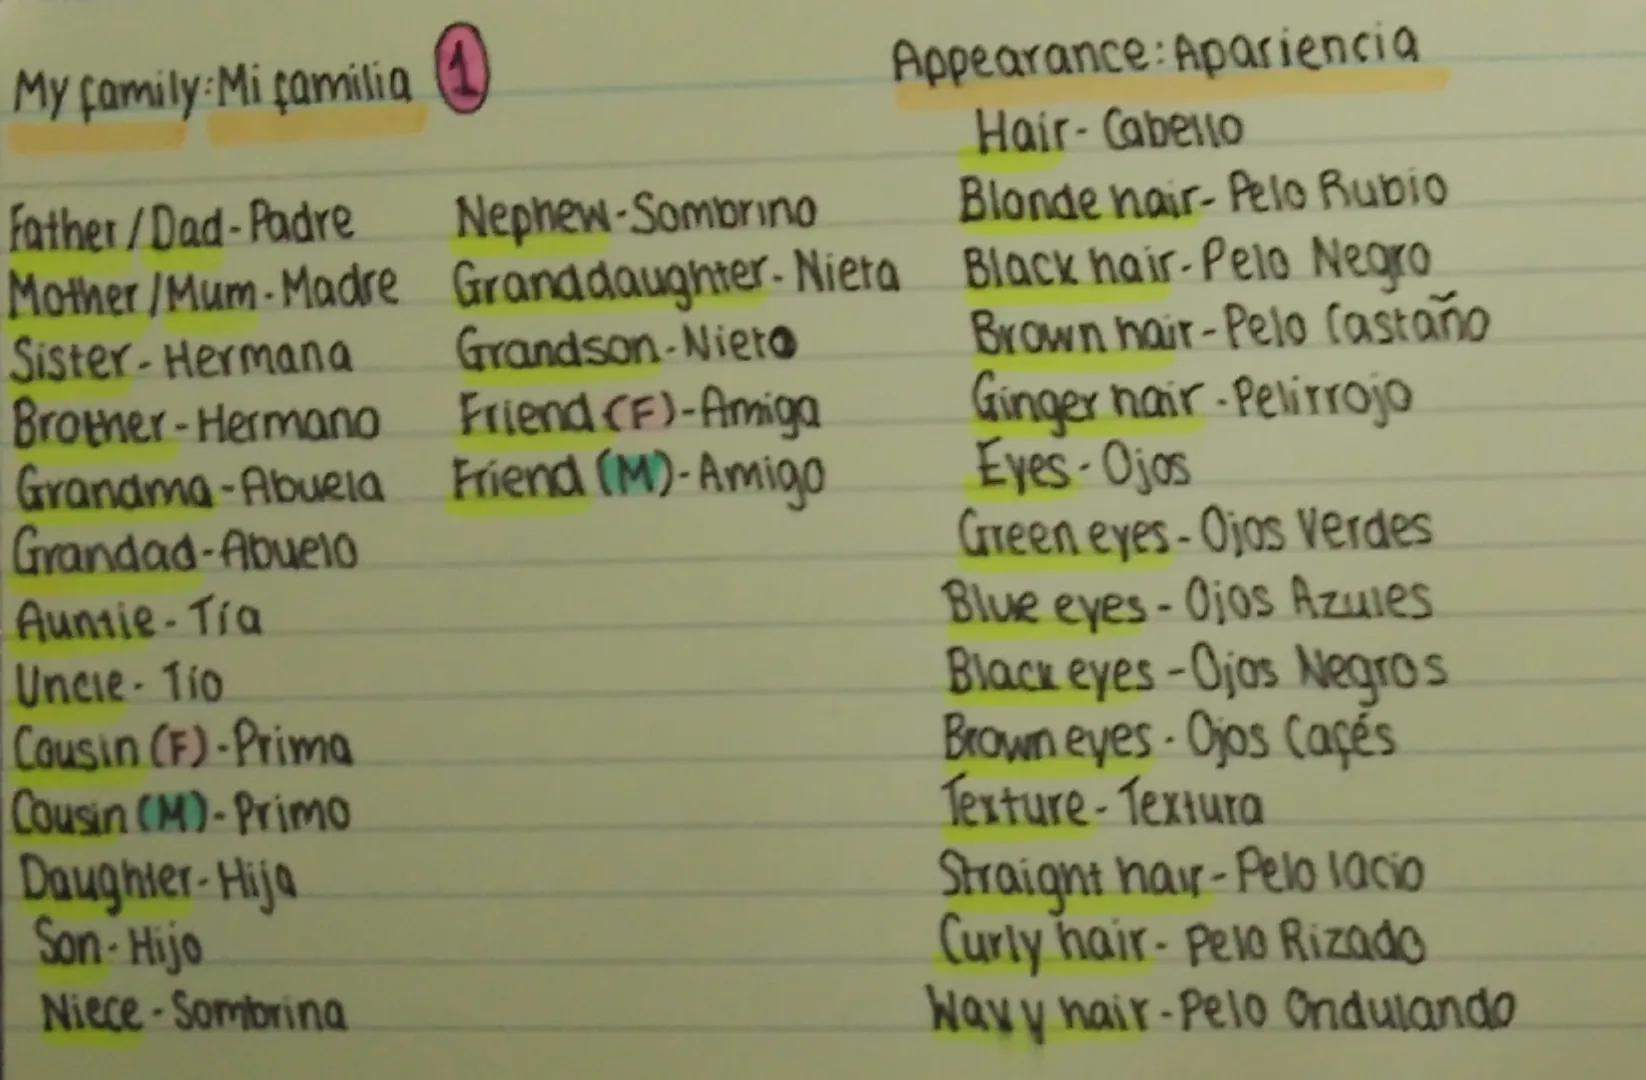 My family: Mi familia 1
Father / Dad - Padre
Mother / Mum - Madre
Sister - Hermana
Brother - Hermano
Grandma - Abuela
Grandad - Abuelo
Auntie - Tía
Uncle - Tío
Cousin (F) - Prima
Cousin (M) - Primo
Daughter - Hija
Son - Hijo
Niece - Sombrina
Nephew - Sombrino
Granddaughter - Nieta
Grandson - Nieto
Friend (F) - Amiga
Friend (M) - Amigo
Appearance: Apariencia
Hair - Cabello
Blonde hair - Pelo Rubio
Black hair - Pelo Negro
Brown hair - Pelo Castaño
Ginger hair - Pelirrojo
Eyes - Ojos
Green eyes - Ojos Verdes
Blue eyes - Ojos Azules
Black eyes - Ojos Negros
Brown eyes - Ojos Cafés
Texture - Textura
Straight hair - Pelo lacio
Curly hair - Pelo Rizado
Wavy hair - Pelo Ondulando